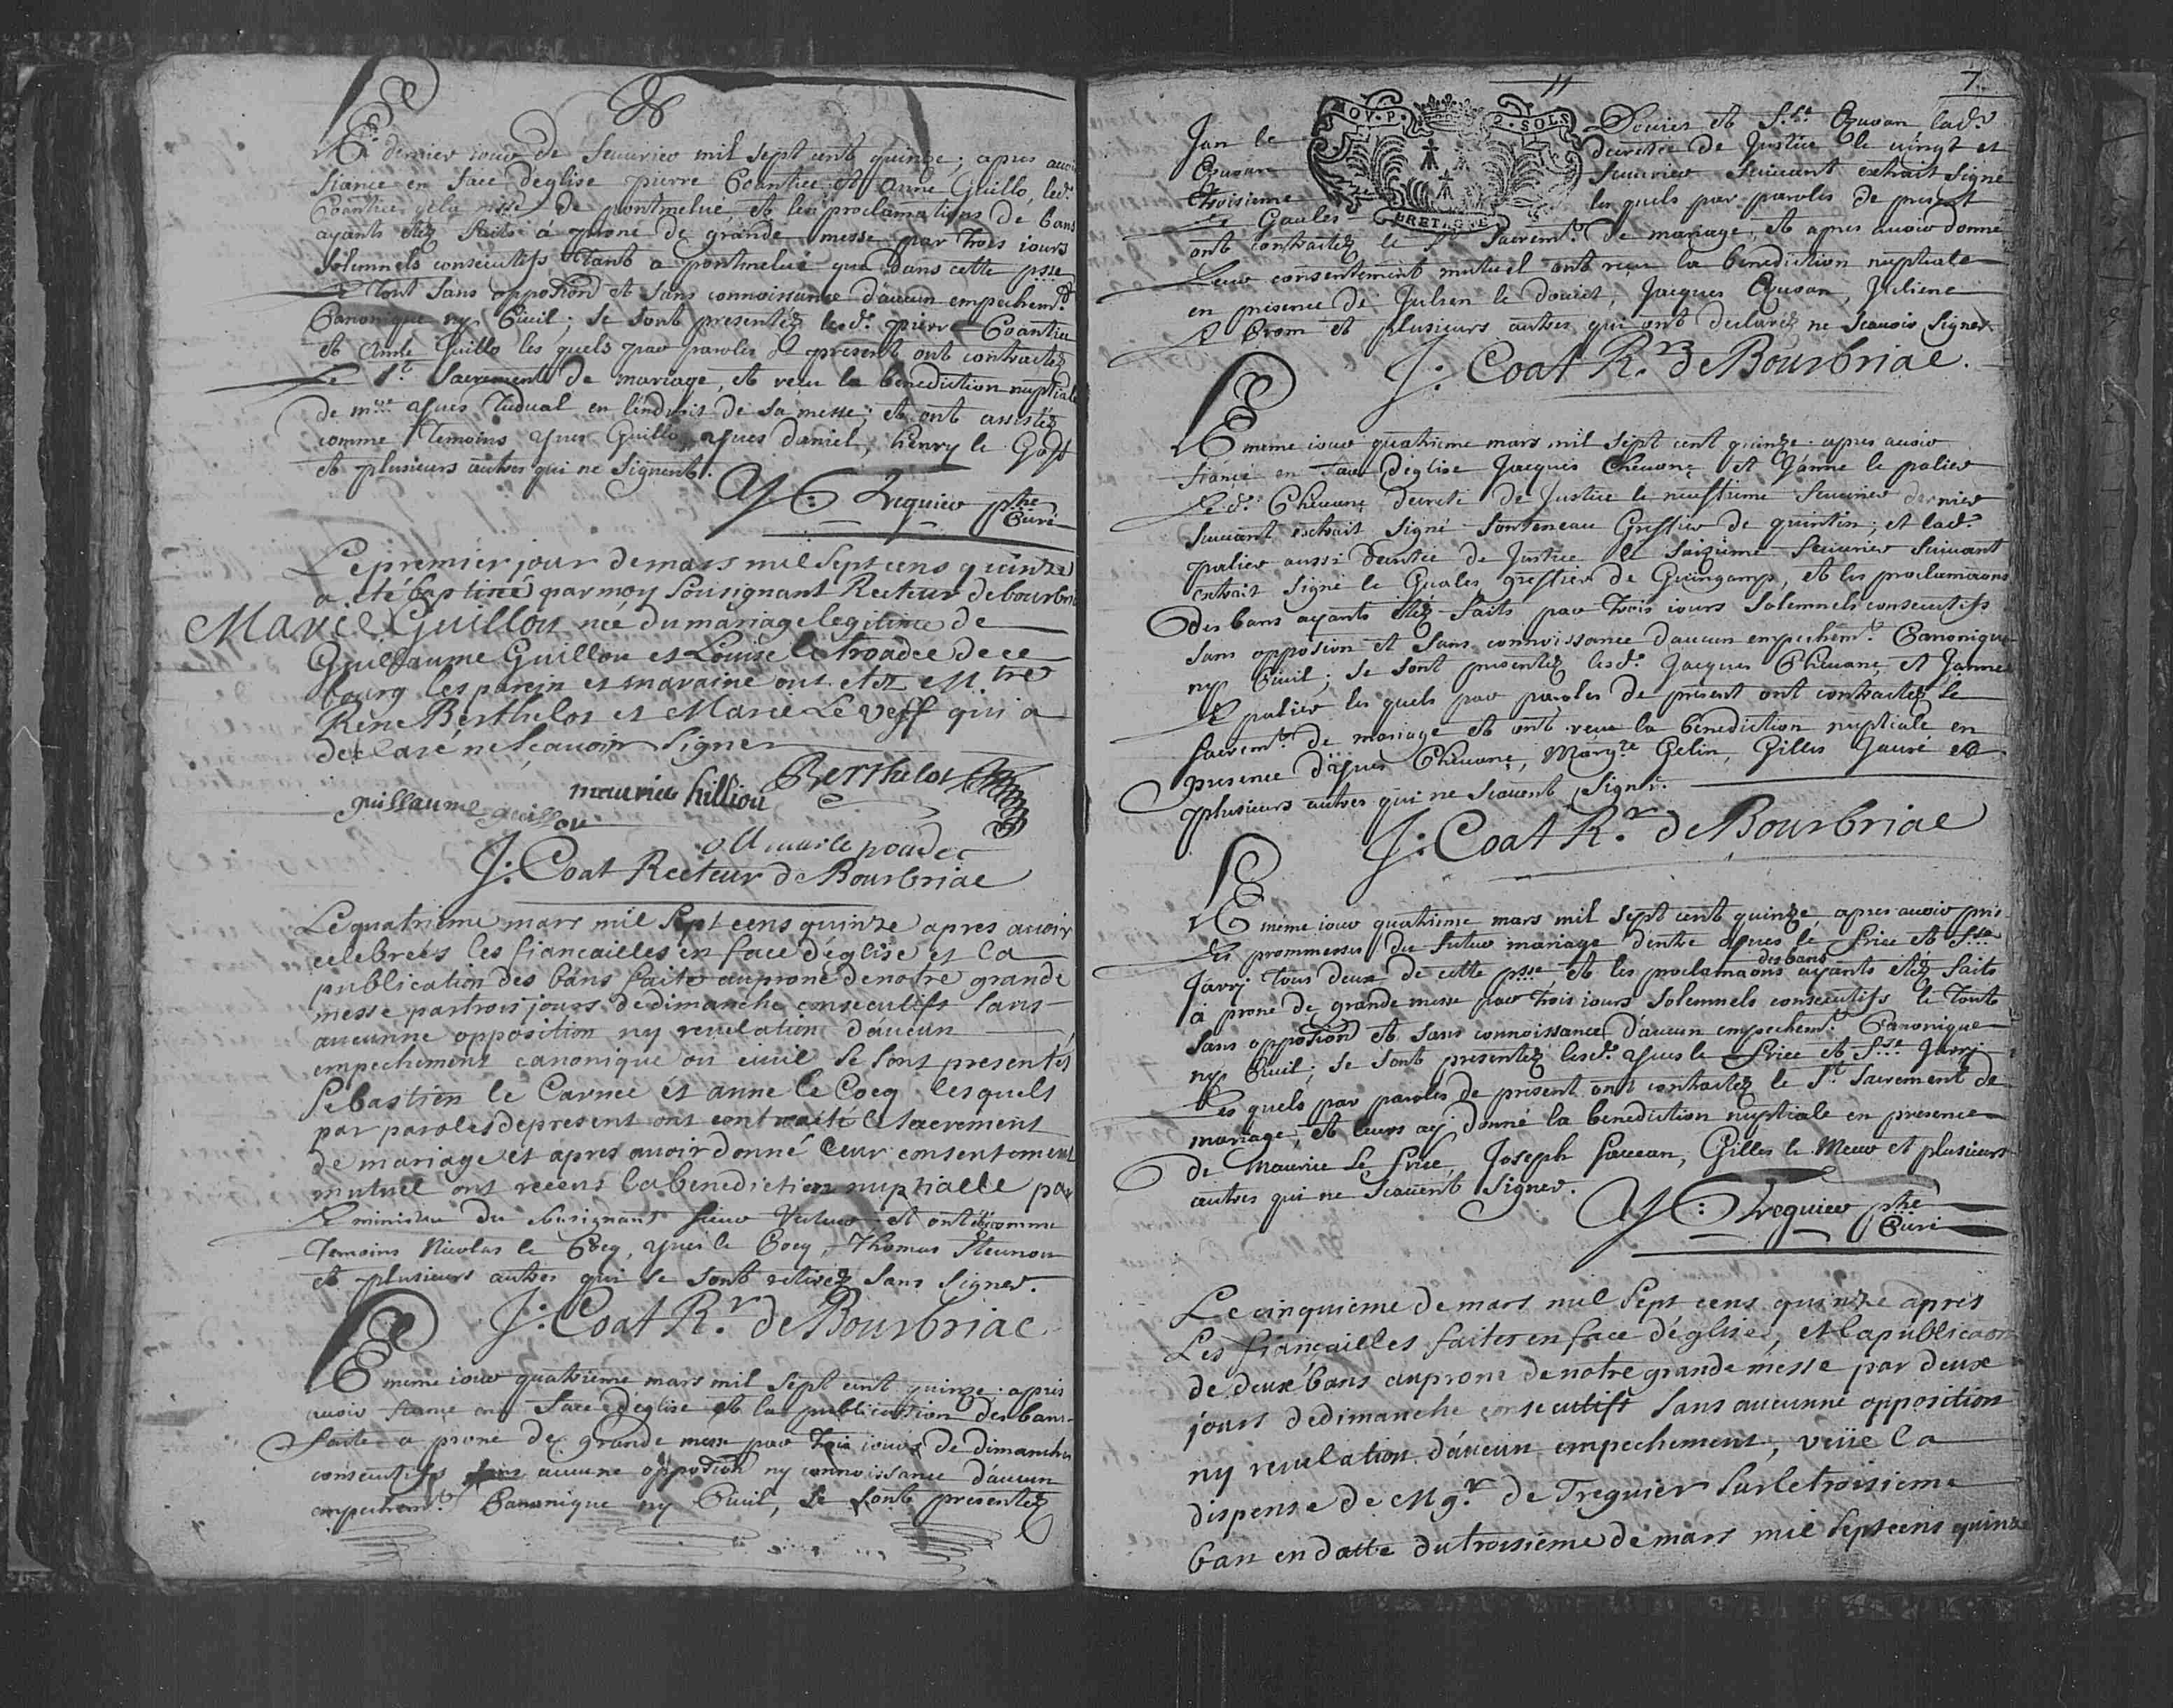 Le dernier iour de feuurier mil sept cent quinze; apres auoir
fiancé en face d'eglise pierre Coantiec et Anne Guillo, led.
Coantiec de la psse de pontmelvé, et les proclamations de bans
ayants étéz faits á prone de grande messe par trois iours
solemnels consecutifs tant a pontmelvé que dans cette psse
Le tout sans opposion et sans connoissance d'aucun empechemt.
Canonique ny Ciuil; se sont presentéz lesd. pierre Coantiec
et Anne Guillo les quels par paroles de present ont contractéz
Le St. Sacrement de mariage, et reçu la benediction nuptiale
de mre yues Tudual en l'endroit de sa messe; et ont assistéz
comme temoins yues Guillo, yues daniel, henry le Goff
et plusieurs autres qui ne signent.
Y: Treguier ptre
Curé
Le premier jour de mars mil sept cens quinze
a été baptiseé par moy sousignant Recteur de bourbriac
Marie Guillou née du mariage legitime de
Guillaume Guillou et Louise le troadec de ce
bourg les parein et maraine ont eté M.tre
Rene Berthelot et Marie Le veff qui a
declaré ne sçauoir signer
maurice hilliou Berthelot
guillaume guillou
J: Coat Recteur de Bourbriac
Le quatrieme mars mil sept cens quinze apres auoir
celebreés les fiancailles en face d'église et la
publication des bans faite au prone de notre grande
messe par trois jours de dimanche consecutifs sans
aucunne opposition ny reuelation d'aucun
empechement canonique ou ciuil se sont presentés
Sebastien le Carnec et anne le Cocq lesquels
par paroles de present ont contracté le sacrement
de mariage et apres auoir donné leur consentement
mutuel ont receus la benediction nuptialle par
Le ministere du sousignant sieur Recteur, et ont eté comme
Temoins Nicolas le Cocq, yues le Cocq, Thomas Steunou
et plusieurs autres qui se sont retiréz sans signer.
J: Coat R.r de Bourbriac
Le meme iour quatrieme mars mil sept cent quinze. apres
auoir fiancé en face d'église et la publication des bans
faite a prone de grande messe par trois iours de dimanche
consecutifs sans aucune opposion ny connoissance d'aucun
empechemt. Canonique ny Ciuil, se sont presentéz
7
MOY. P. 2. SOLS
BRETAGNE
Jan le Douirer et
decretée de Justice le vingt et
troisieme feuurier suiuant extrait signé
Le Gaules les quels par paroles de present
ont contractéz le St. Sacremt. de mariage, et apres auoir donné
Leur consentement mutuel ont reçu la benediction nuptiale
en presence de Julien le douirer, Jacques, Juliene
Le Crom et plusieurs autres qui ont declaréz ne scauoir signer.
J: Coat R.r de Bourbriac.
Le meme iour quatrieme mars mil sept cent quinze. apres auoir
fiancé en face d'église Jacques Cheuanç et Janne le palier
Le d. Cheuanç decreté de Justice le neuffieme feuurier dernier
suiuant extrait signé Greffier de quintin; et lad.
palier aussi decretée de Justice le saizieme feuurier suiuant
extrait signé le Guales greffier de Guingamp, et les proclamaons
des bans ayants étéz faits par trois iours solemnels consecutifs
sans opposion et sans connoissance d'aucun empechemt. Canonique
ny Ciuil; se sont presentéz lesd. Jacques Cheuanç et Janne
Le palier les quels par paroles de present ont contractéz le
sacremt. de mariage et ont reçu la benediction nuptiale en
presence d'yues Cheuanç, Margte Gelin, Gilles Jauré et
plusieurs autres qui ne scauent signer.
J: Coat R.r de Bourbriac
Le meme iour quatrieme mars mil sept cent quinze, apres auoir pris
Les prommesses du futur mariage d'entre yues le frice et
Javrj tous deux de cette psse, et les proclamaons des bans ayants étéz faits
á prone de grande messe par trois iours solemnels consecutifs le tout
sans opposion et sans connoissance d'aucun empechemt. Canonique
ny Ciuil; se sont presentéz lesd. yues le frice et Javrj
Les quels par paroles de present ont contractéz le St. Sacrement de
mariage, et leurs aÿ donné la benediction nuptiale en presence
de Maurice Le frice, Joseph, Gilles le Meur et plusieurs
autres qui ne scauent signer.
Y: Treguier ptre
Curé
Le cinquieme de mars mil sept cens quinze apres
Les fiançailles faites en face d'église, et la publicaon
de deux bans au prone de notre grande messe par deux
jours de dimanche consecutifs sans aucunne opposition
ny reuelation d'aucun empechement, veüe la
dispense de Mgr. de Treguier sur le troisieme
ban en datte du troisieme de mars mil sept cens quinze